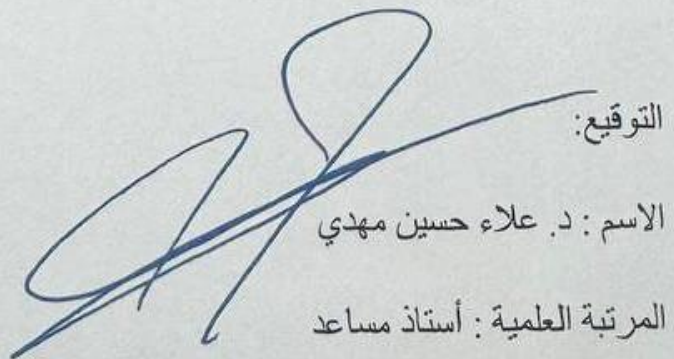 التوقيع:
الاسم : د. علاء حسين مهدي
المرتبة العلمية : أستاذ مساعد